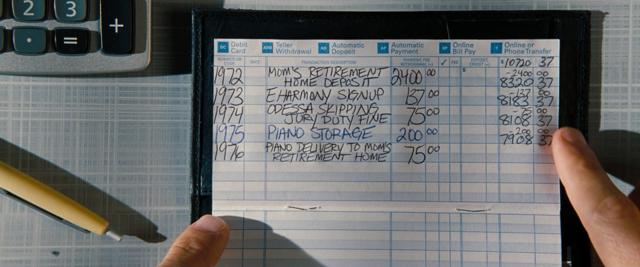 DC Debit Card ATW Teller Withdrawal AD Automatic Deposit AP Automatic Payment BP Online Bill Pay T Online or Phone Transfer
DATE TRANSACTION DESCRIPTION
$10720 37
1972 MOM'S RETIREMENT HOME DEPOSIT 2400 00 -2400 00
8320 37
1973 EHARMONY SIGNUP 137 00 -137 00
8183 37
1974 ODESSA SKIPPING JURY DUTY FINE 75 00
8108 37
1975 PIANO STORAGE 200 00 -200 00
7908 37
1976 PIANO DELIVERY TO MOM'S RETIREMENT HOME 75 00